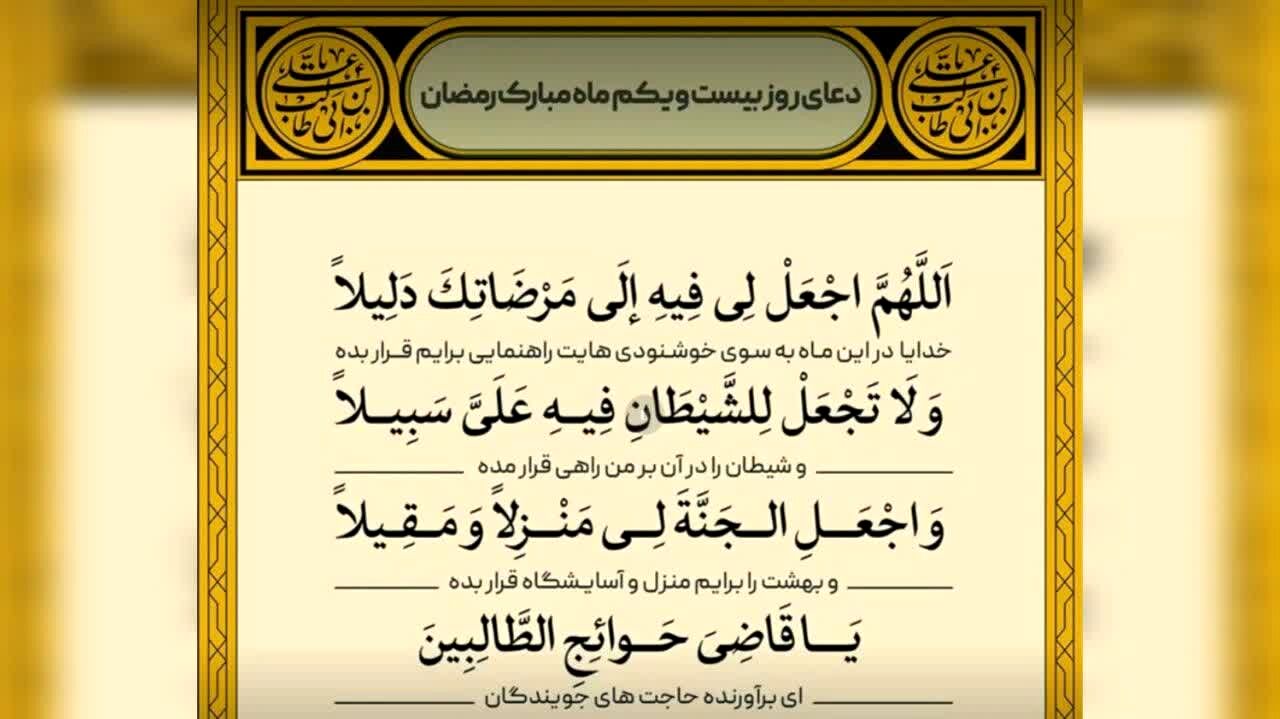 دعای روز بیست و یکم ماه مبارک رمضان
علی بن ابی طالب
علی بن ابی طالب
اَللَّهُمَّ اجْعَلْ لِی فِیهِ إِلَی مَرْضَاتِكَ دَلِیلاً
خدایا در این ماه به سوی خوشنودی هایت راهنمایی برایم قرار بده
وَ لَا تَجْعَلْ لِلشَّیْطَانِ فِیهِ عَلَیَّ سَبِیلاً
و شیطان را در آن بر من راهی قرار مده
وَ اجْعَلِ الجَنَّةَ لِی مَنْزِلاً وَ مَقِیلاً
و بهشت را برایم منزل و آسایشگاه قرار بده
یَا قَاضِیَ حَوائِجِ الطَّالِبِینَ
ای برآورنده حاجت های جویندگان